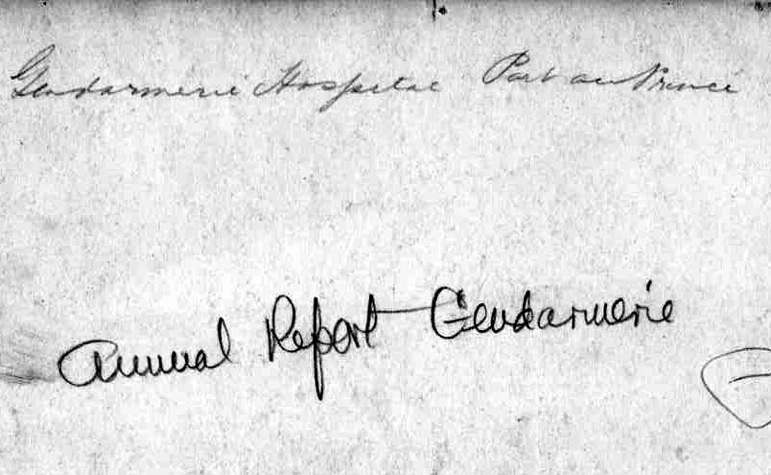 Gendarmerie Hospital Port au Prince
Annual Report Gendarmerie